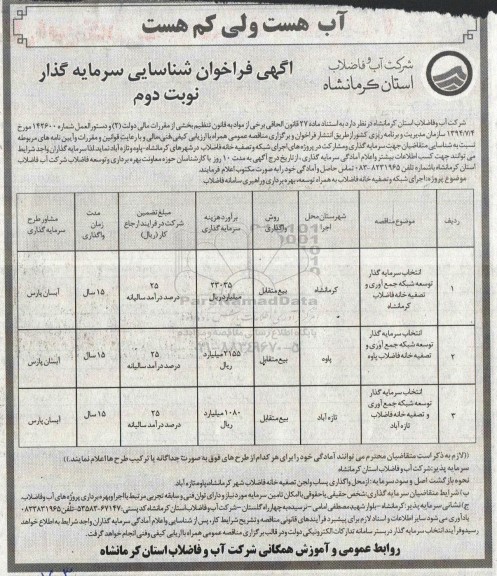 آب هست ولی کم هست
شرکت آب و فاضلاب
استان کرمانشاه
آگهی فراخوان شناسایی سرمایه گذار
نوبت دوم
شرکت آب و فاضلاب استان کرمانشاه در نظر دارد به استناد ماده ۲۷ قانون الحاقی برخی از مواد به قانون تنظیم بخشی از مقررات مالی دولت (۲) و دستورالعمل شماره ۱۴۲۶۰۰ مورخ
۱۳۹۴/۷/۴ سازمان مدیریت و برنامه ریزی کشور از طریق انتشار فراخوان و برگزاری مناقصه عمومی همراه با ارزیابی کیفی فنی مالی و با رعایت قوانین و مقررات و آیین نامه های مربوطه
نسبت به شناسایی متقاضیان جهت سرمایه گذاری و مشارکت در پروژه های اجرای شبکه و تصفیه خانه فاضلاب در شهرهای کرمانشاه - پاوه و تازه آباد نماید. لذا سرمایه گذاران واجد شرایط
می توانند جهت کسب اطلاعات بیشتر و اعلام آمادگی سرمایه گذاری، از تاریخ درج آگهی به مدت ۱۰ روز با کارشناسان حوزه معاونت بهره برداری و توسعه فاضلاب شرکت آب و فاضلاب
استان کرمانشاه با شماره تلفن ۸۲۳۱۹۶۵-۰۸۳ تماس حاصل و آمادگی خود را به صورت مکتوب اعلام فرمایند.
موضوع پروژه: اجرای شبکه و تصفیه خانه فاضلاب به همراه توسعه، بهره برداری و راهبری سامانه فاضلاب
ردیف موضوع مناقصه شهرستان محل اجرا روش واگذاری برآورد هزینه سرمایه گذاری مبلغ تضمین شرکت در فرایند ارجاع کار (ریال) مدت زمان واگذاری مشاور طرح سرمایه گذاری
۱ انتخاب سرمایه گذار توسعه شبکه جمع آوری و تصفیه خانه فاضلاب کرمانشاه کرمانشاه بیع متقابل ۲۳۰۳۵ میلیارد ریال ۲۵ درصد درآمد سالیانه ۱۵ سال آبسان پارس
۲ انتخاب سرمایه گذار توسعه شبکه جمع آوری و تصفیه خانه فاضلاب پاوه پاوه بیع متقابل ۲۱۵۵ میلیارد ریال ۲۵ درصد درآمد سالیانه ۱۵ سال آبسان پارس
۳ انتخاب سرمایه گذار توسعه شبکه جمع آوری و تصفیه خانه فاضلاب تازه آباد تازه آباد بیع متقابل ۱۰۸۰ میلیارد ریال ۲۵ درصد درآمد سالیانه ۱۵ سال آبسان پارس
ParsNamadData
((لازم به ذکر است متقاضیان محترم می توانند آمادگی خود را برای هر کدام از طرح های فوق به صورت جداگانه یا ترکیب طرح ها اعلام نمایند.))
سرمایه پذیر: شرکت آب و فاضلاب استان کرمانشاه
نحوه بازگشت اصل و سود سرمایه: از محل واگذاری پساب و لجن تصفیه خانه فاضلاب شهر کرمانشاه، پاوه و تازه آباد
ب) شرایط متقاضیان سرمایه گذاری: شخص حقیقی یا حقوقی با امکان تامین سرمایه مورد نیاز و دارای توان فنی و سابقه تجربی مرتبط با اجرا و بهره برداری پروژه های آب و فاضلاب.
ج) نشانی سرمایه پذیر: کرمانشاه - بلوار شهید مصطفی امامی - نرسیده به چهارراه گلستان - شرکت آب و فاضلاب استان کرمانشاه کد پستی: ۶۷۱۴۷-۵۳۵۸۳ تلفن: ۰۸۳۳۸۲۳۱۹۶۵
یادآوری می شود سایر اطلاعات و اسناد لازم برای پیشبرد فرآیندهای قانونی مناقصه و تشریح شرایط کار، پس از شناسایی و اعلام آمادگی سرمایه گذاران واجد شرایط به اطلاع خواهد
رسید و فرآیند انتخاب سرمایه گذار در بستر سامانه تدارکات الکترونیکی دولت و در قالب برگزاری مناقصه عمومی همراه با ارزیابی کیفی وفنی انجام خواهد گرفت.
روابط عمومی و آموزش همگانی شرکت آب و فاضلاب استان کرمانشاه